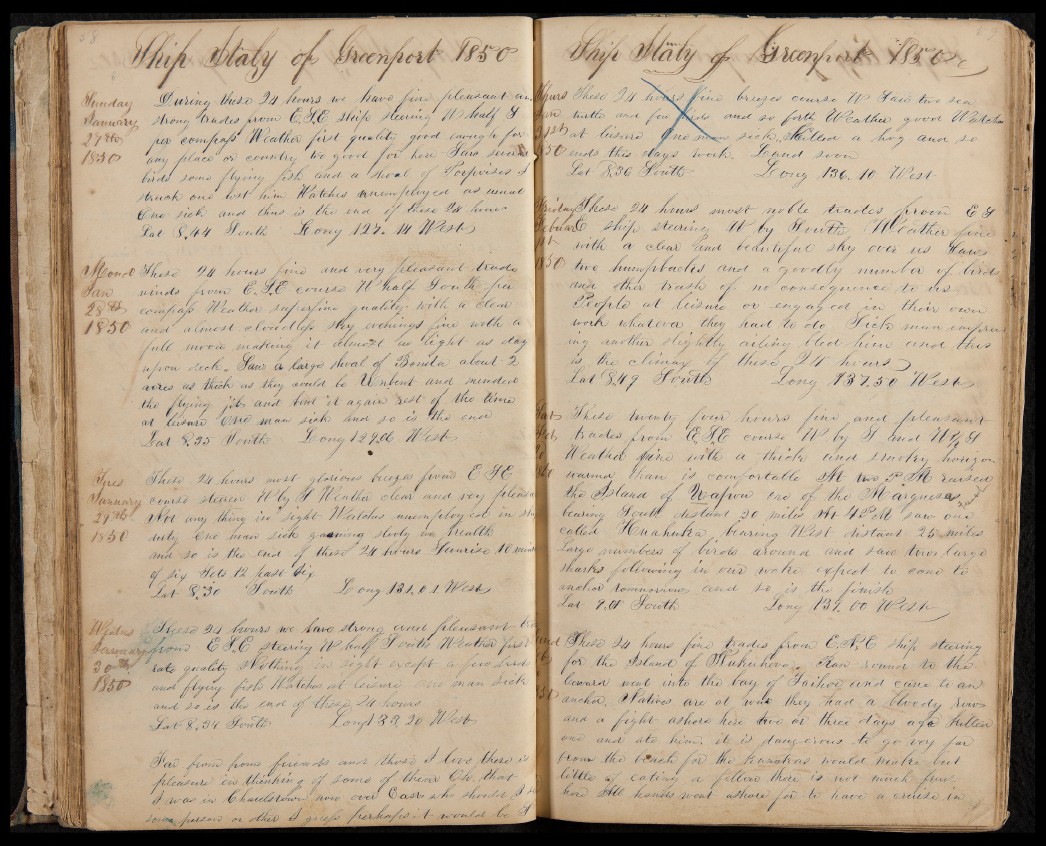 58
Ship Italy of Greenport 1850
Sunday
January
27th
1850
During these 24 hours we have fine pleasant and
strong trades from E.S.E ship steering W half S
per compass Weather first quality good enough for
any place or country too good for here Saw several
birds some flying fish and a shoal of Porpoises
struck one lost him Watches unemployed as usual
One sick and thus is the end of these 24 hours
Lat 8,44 South Long 127. 14 West
Mond
Jan
28th
1850
These 24 hours fine and very pleasant trade
winds from E.S.E course W half South per
compass Weather superfine quality with a clear
and almost cloudless sky evenings fine with a
full moon making it almost as light as day
upon deck. Saw a large shoal of Bonita about 2
acres as thick as they could be Unbent and mended
the flying jib and bent it again rest of the time
at leisure One man sick and so is the end
Lat 8.35 South Long 129.06 West
Tues
January
29th
1850
These 24 hours most glorious breeze from E.S.E
course steered W by S Weather clear and very pleasant
Not any thing in sight Watches unemployed in ship
duty One man sick gaining slowly in health
and so is the end of these 24 hours Sunrise 10 min
of six Sets 12 past six
Lat 8,30 South Long 131,01 West
Wednes
January
30th
1850
These 24 hours we have strong and pleasant
from E.S.E steering W half South Weather first
rate quality Nothing in sight except a few birds
and flying fish Watches at leisure one man sick
and so is the end of these 24 hours
Lat 8,34 South Long 133, 20 West
Far from home friends and those I love there is
pleasure in thinking of some of them Oh that
I was in Charlstown now over Casrs
some person or other I guess perhaps it would be
Ship Italy of Greenport 1850
These 24 hours fine breezes course W Saw two sea
turtle and few birds and so forth Weather good Watches
at leisure One man sick. Killed a hog and so
ends this days work. Land soon
Lat 8,36 South Long 136. 10 West
Friday
1st
1850
These 24 hours most noble trades from E S
E ship steering W by South Weather fine
with a clear and beautiful sky over us Saw
two humpbacks and a goodly number of birds
and other trash of no consequence to us
People at leisure or engaged in their own
work whatever they had to do Sick man
ing another slightly ailing bled him and this
is the climax of these 24 hours
Lat 8,49 South Long 137.50 West
These twenty four hours fine and pleasant
trades from E.S.E course W by S and
Weather fine with a thick and smoky horizon
warmer than is comfortable At two P M raised
the Island of Wapou one of the Marquesas
bearing South distant 30 miles At 4 P M saw one
called Huahuka bearing West distant 25 miles
Large numbers of birds around and saw two large
sharks following in our wake expect to come to
anchor tomorrow and so is the finish
Lat 9.01 South Long 139. 00 West
These 24 hours fine trades from ship steering
for the Island of Nukuhova Ran round to the
leeward went into the bay of Taihoe and came to an
anchor. Natives are at war they had a bloody row
and a fight ashore here two or three days ago killed
one and ate him. it is dangerous to go very far
from the beach for the Kannakas would make but
little of eating a fellow there is not much fruit
here All hands went ashore for to have a cruise in